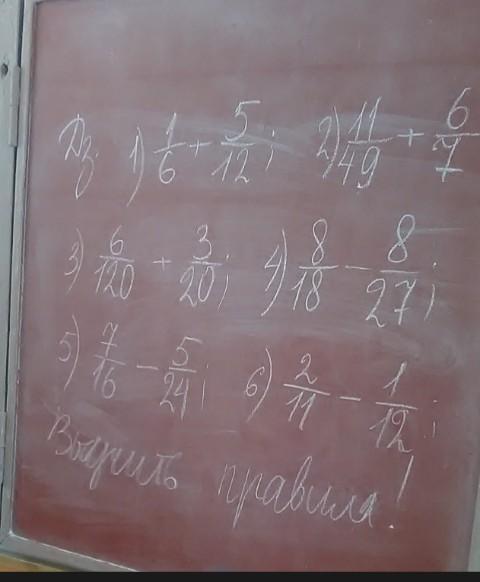 Дз. 1) 1/6 + 5/12; 2) 11/49 + 6/7
3) 6/120 + 3/20; 4) 8/18 - 8/27;
5) 7/16 - 5/24; 6) 2/11 - 1/12;
Выучить правила!